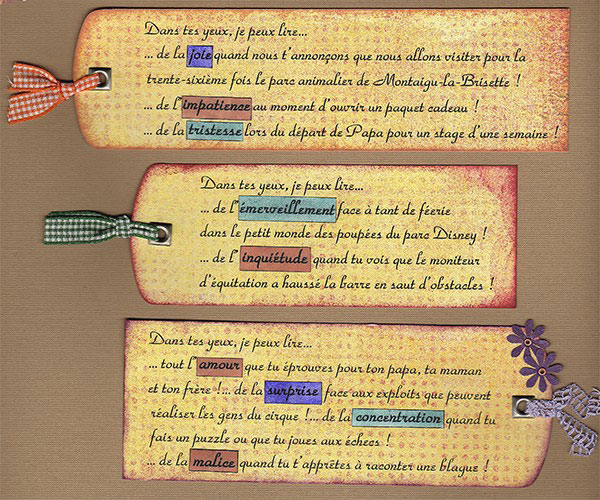 Dans tes yeux, je peux lire...
... de la joie quand nous t'annonçons que nous allons visiter pour la
trente-sixième fois le parc animalier de Montaigu-la-Brisette !
... de l'impatience au moment d'ouvrir un paquet cadeau !
... de la tristesse lors du départ de Papa pour un stage d'une semaine !
Dans tes yeux, je peux lire...
... de l'émerveillement face à tant de féerie
dans le petit monde des poupées du parc Disney !
... de l' inquiétude quand tu vois que le moniteur
d'équitation a haussé la barre en saut d'obstacles !
Dans tes yeux, je peux lire...
... tout l'amour que tu éprouves pour ton papa, ta maman
et ton frère !... de la surprise face aux exploits que peuvent
réaliser les gens du cirque !... de la concentration quand tu
fais un puzzle ou que tu joues aux échecs !
... de la malice quand tu t'apprêtes à raconter une blague !